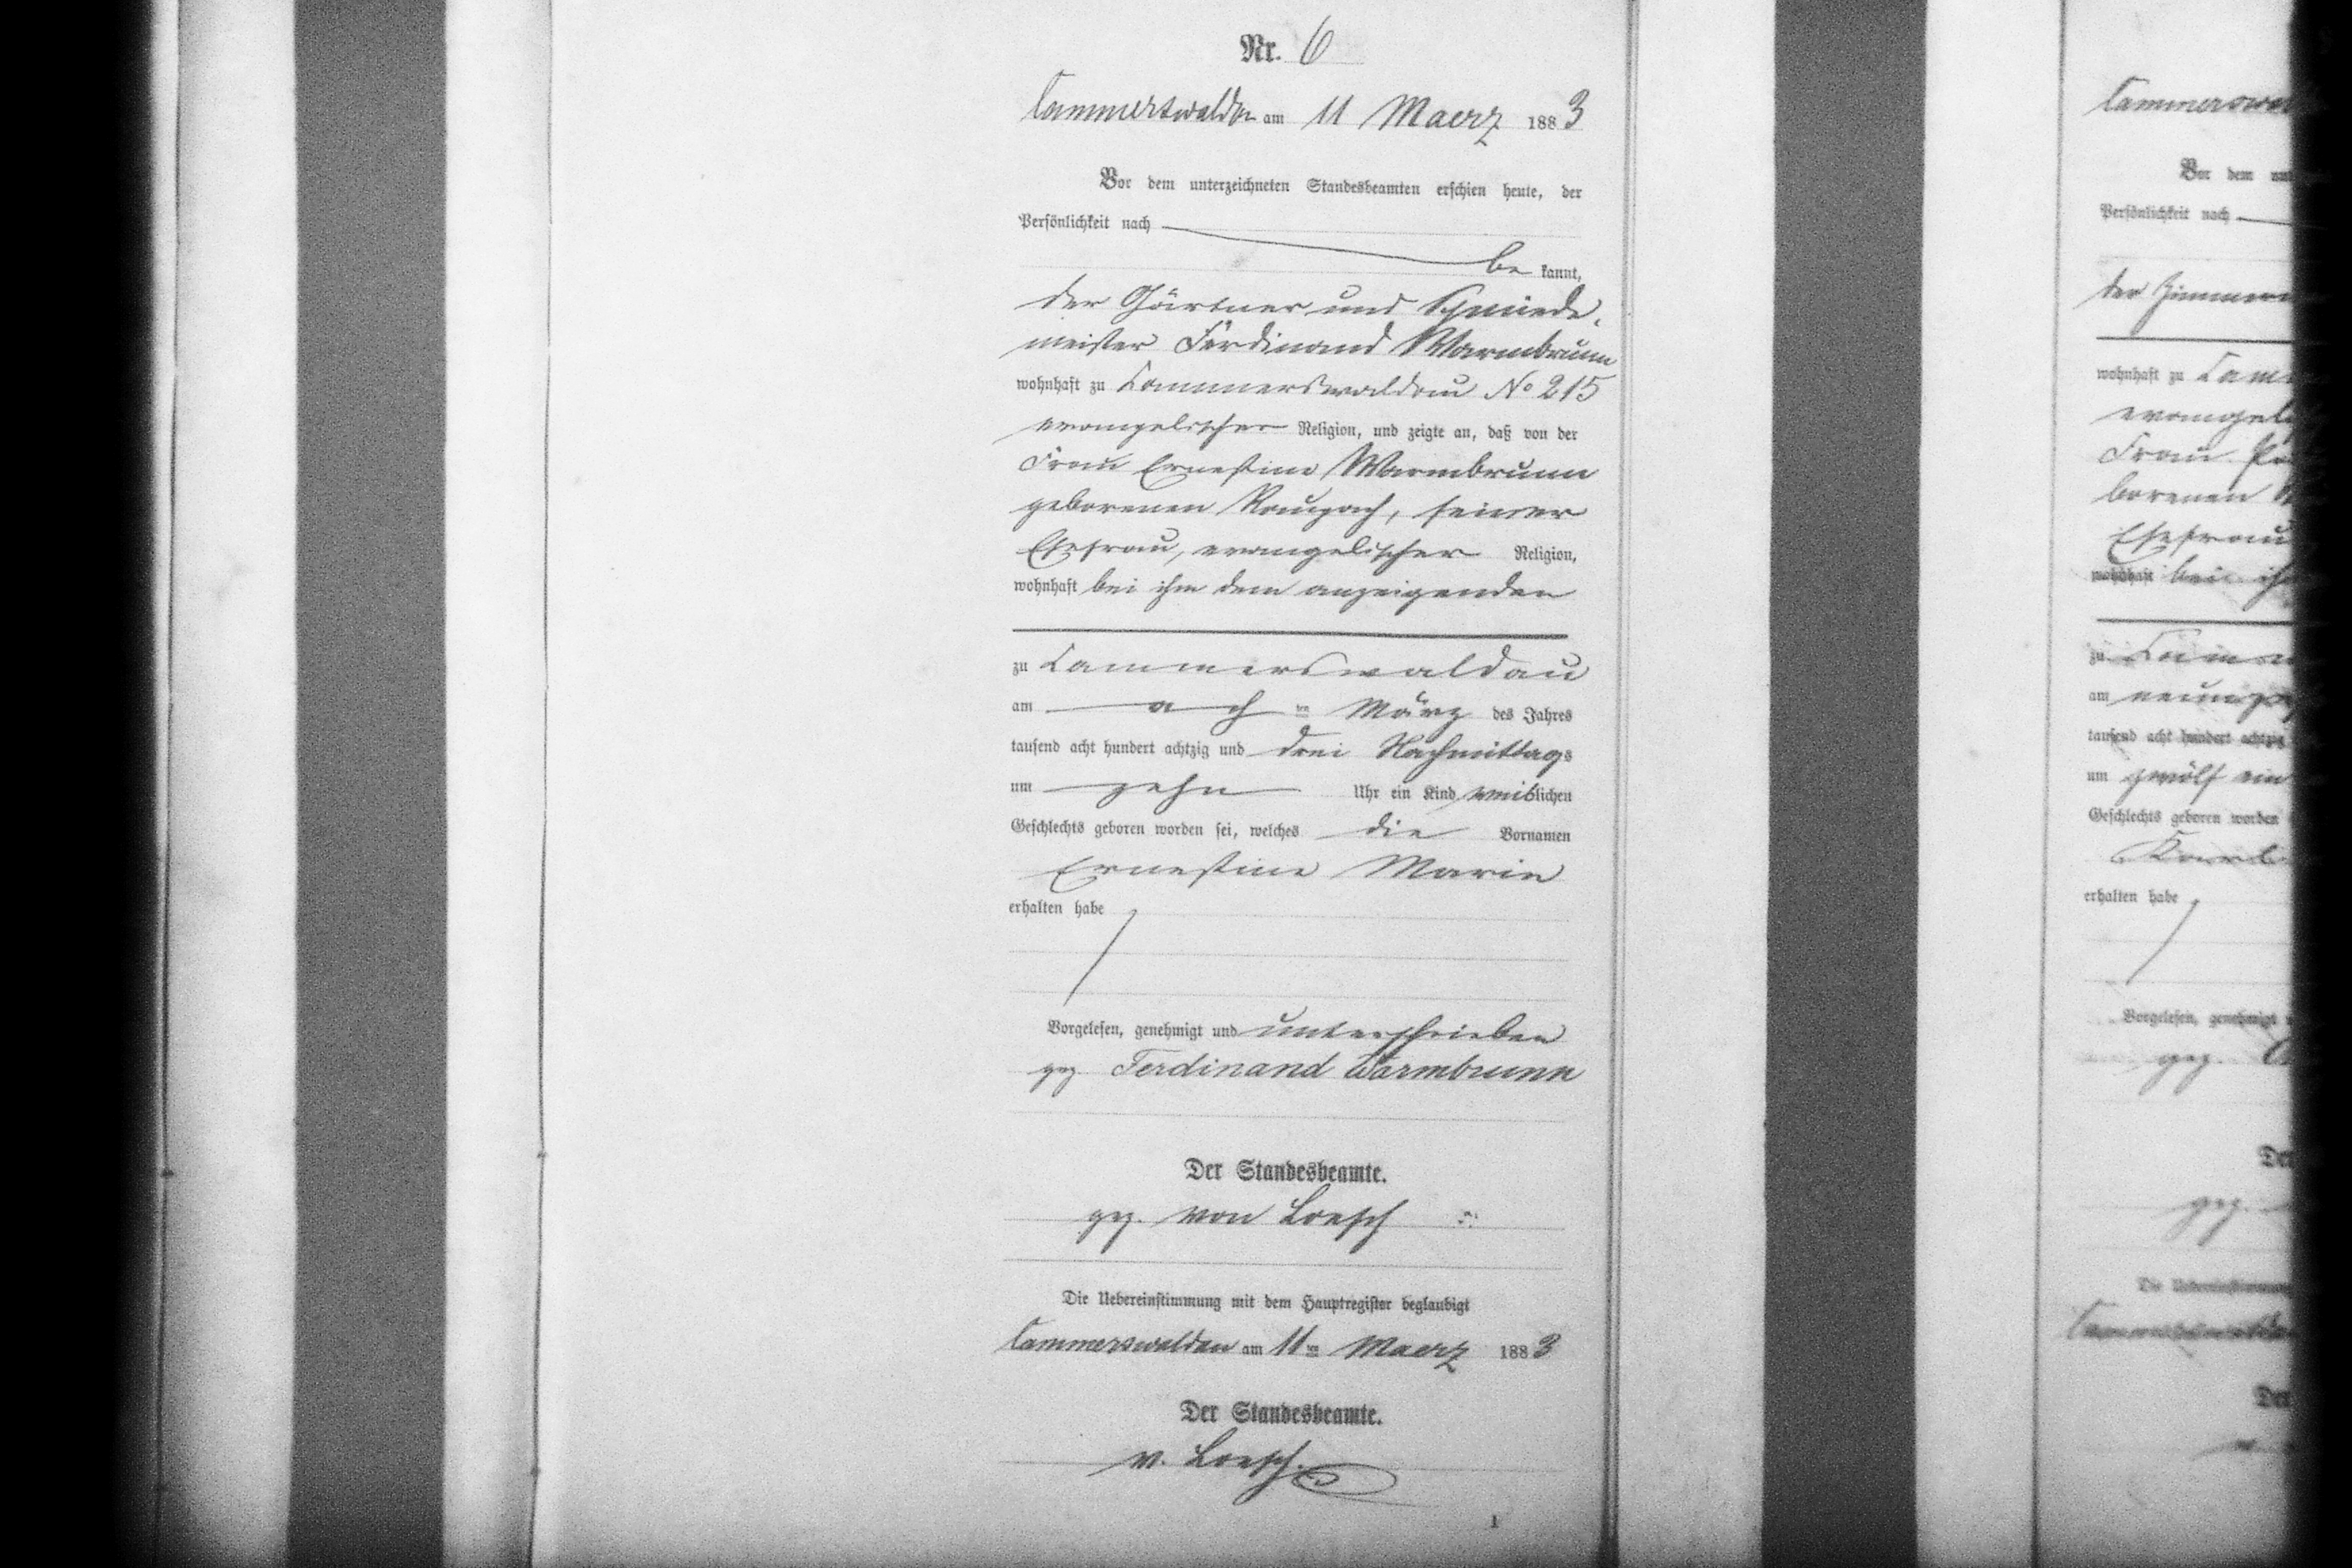 Nr. 6
Cammerswaldau am 11 Maerz 1883
Vor dem unterzeichneten Standesbeamten erschien heute, der
Persönlichkeit nach
be kannt,
der Gärtner und Schmiede-
meister Ferdinand Warmbrunn
wohnhaft zu Cammerswaldau No 215
evangelischer Religion, und zeigte an, daß von der
Frau Ernestine Warmbrunn
geborenen Raupach, seiner
Ehefrau, evangelischer Religion,
wohnhaft bei ihm dem anzeigenden
zu Cammerswaldau
am ten März des Jahres
tausend acht hundert achtzig und drei Nachmittags
um zehn Uhr ein Kind weiblichen
Geschlechts geboren worden sei, welches die Vornamen
Ernestine Marie
erhalten habe
Vorgelesen, genehmigt und unterschrieben
gez. Ferdinand Warmbrunn
Der Standesbeamte.
gez. von Loesch
Die Uebereinstimmung mit dem Hauptregister beglaubigt
Cammerswaldau am 11ten Maerz 1883
Der Standesbeamte.
v. Loesch.
1
Cammerswal
Vor dem unt
Persönlichkeit nach
der Zimmerm
wohnhaft zu Cam
evangel
Frau
borenen
Ehefrau
wohnhaft bei ih
zu Camm
am neunze
tausend acht hundert achtzig
um zwölf ein
Geschlechts geboren worden
Karl
erhalten habe
Vorgelesen, genehmigt
gez.
De
gez.
Die Uebereinstimmung
De